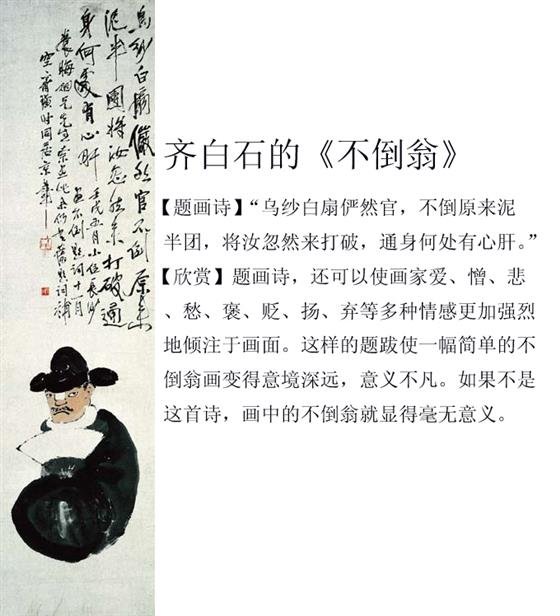 烏紗白扇儼然官不倒原来
泥半團將汝忽然来打破通
身何處有心肝
齐白石的《不倒翁》
【题画诗】“乌纱白扇俨然官，不倒原来泥
半团，将汝忽然来打破，通身何处有心肝。”
【欣赏】题画诗，还可以使画家爱、憎、悲
、愁、褒、贬、扬、弃等多种情感更加强烈
地倾注于画面。这样的题跋使一幅简单的不
倒翁画变得意境深远，意义不凡。如果不是
这首诗，画中的不倒翁就显得毫无意义。